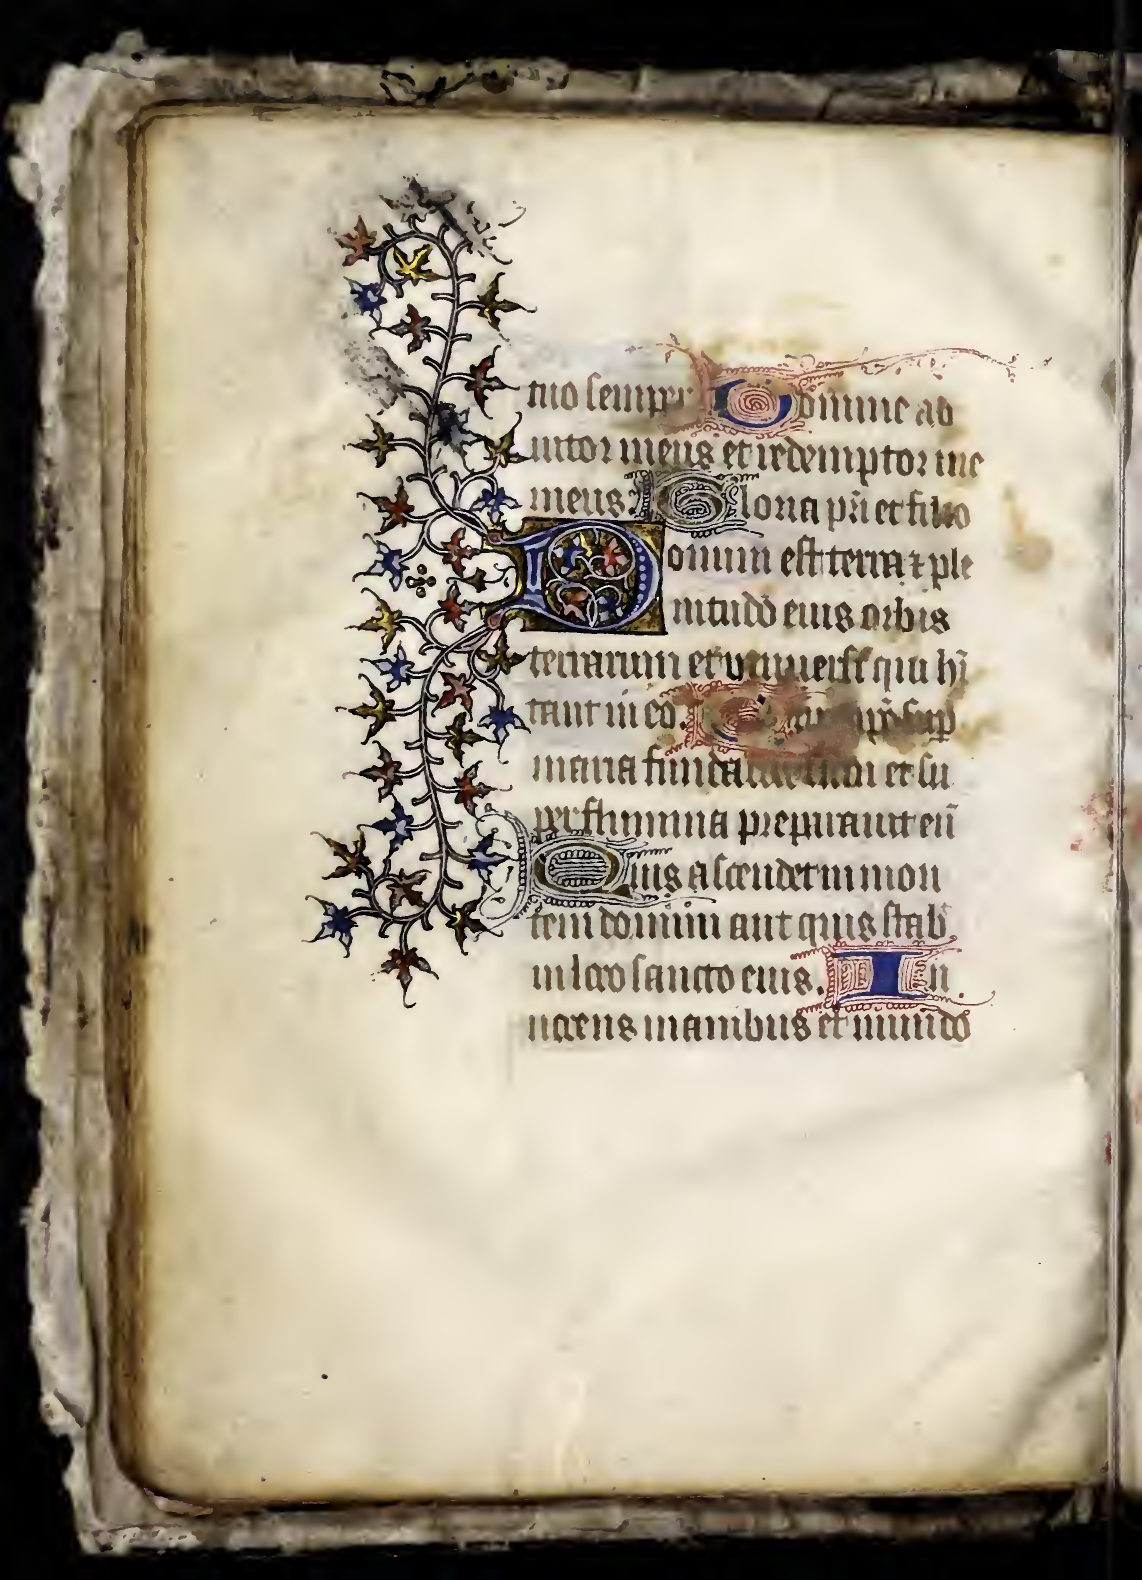 tuo semper Domine ad
iutor meus et redemptor me
meus. Gloria pri et filio
Domini est terra ⁊ ple
nitudo eius orbis
terrarum et vniuersi qui hi
tant in eo. sup
maria et su
per flumina preparauit eū
Quis ascendet in mon
tem domini aut quis stab
in loco sancto eius. In
nocens manibus et mundo